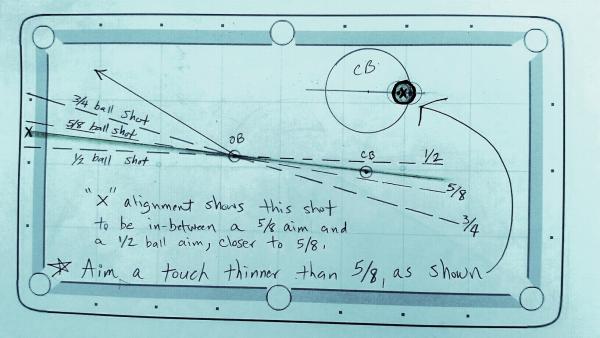 CB
3/4 ball shot
5/8 ball shot
X
1/2 ball shot
OB
CB
1/2
5/8
3/4
X
"X" alignment shows this shot
to be in-between a 5/8 aim and
a 1/2 ball aim, closer to 5/8.
Aim a touch thinner than 5/8, as shown